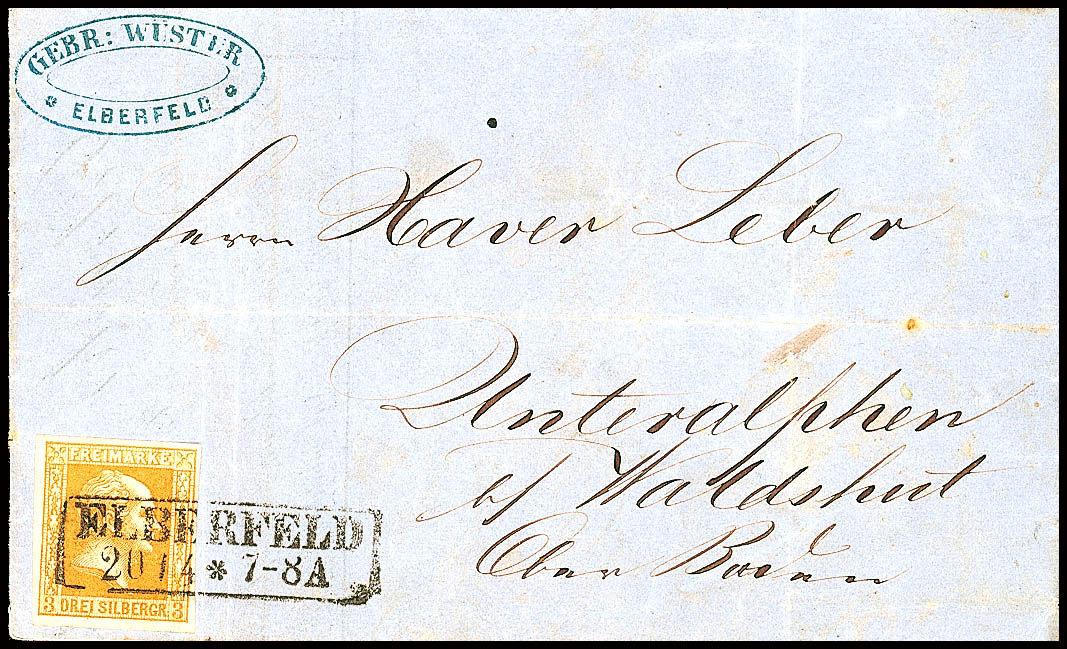 GEBR: WÜSTER
* ELBERFELD *
Herrn Xaver Leber
Unteralphen
b/ Waldshut
Ober Baden
FREIMARKE
ELBERFELD
20 / 4 * 7-8A
3 DREI SILBERGR. 3